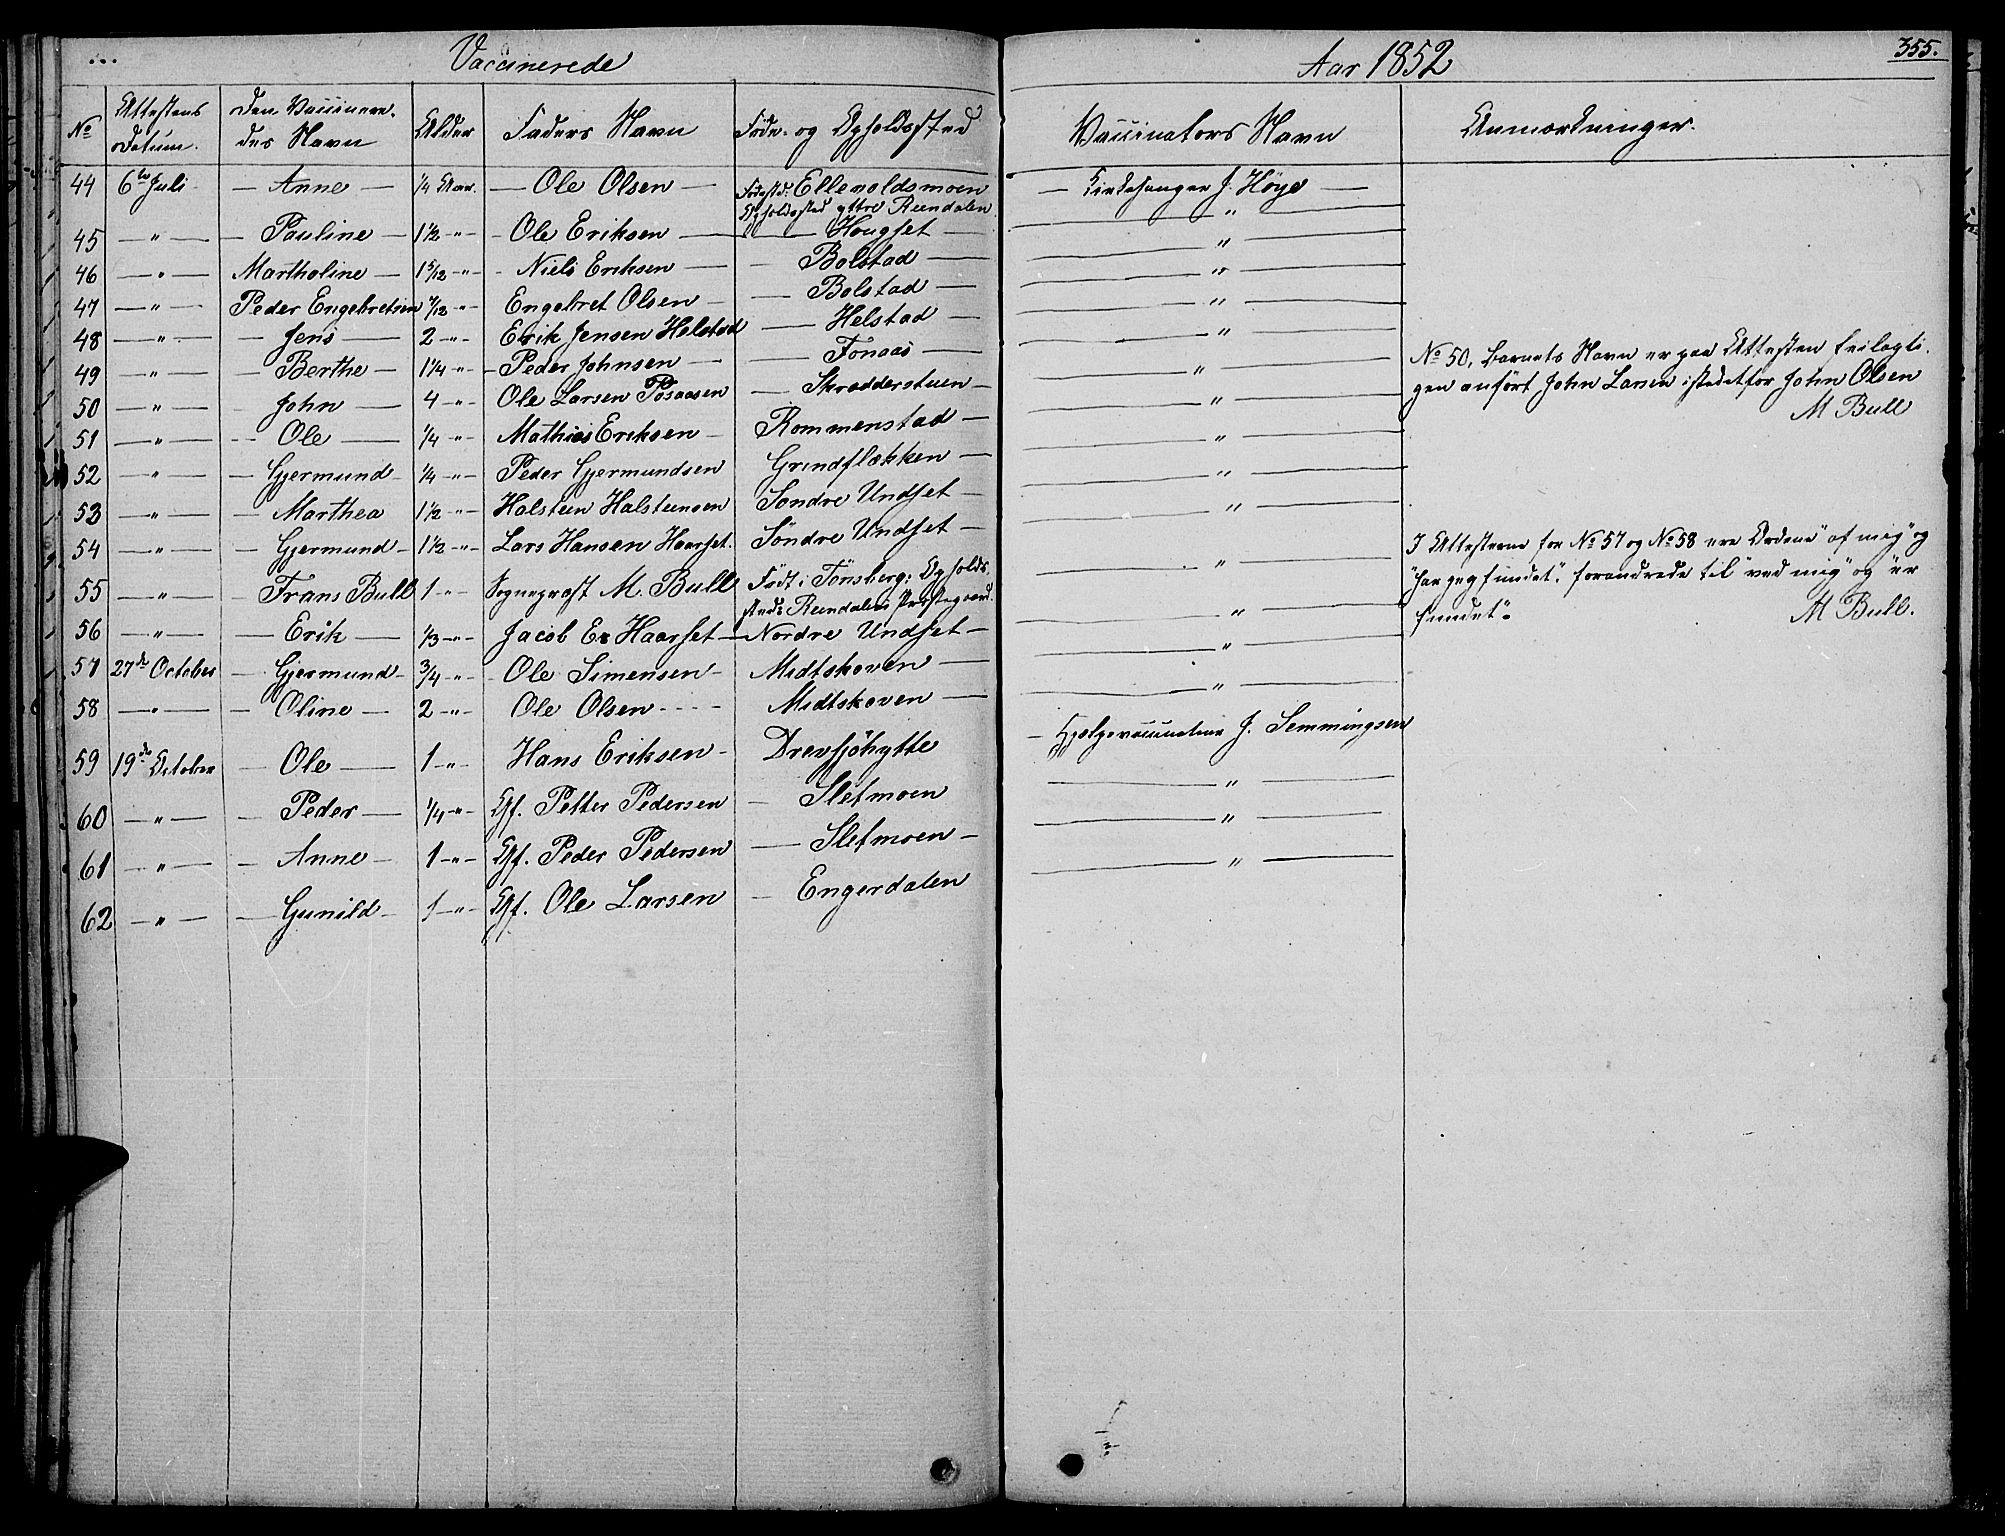 Vaccinerede
Aar 1852
355.
No
Attestens Datum.
Den Vaccinere-des Navn
Alder
Faders Navn
Føde- og Opholdssted
Vaccinators Navn
Anmærkninger.
44 6te Juli — Anne — 1/4 Aar. — Ole Olsen — Fødested: Ellevoldsmoen
Opholdssted yttre Rendalen — Kirkesanger J. Höye —
45 — " — — Pauline — 1 1/2 - " - - Ole Eriksen — Hougset — "
46 — " — Martholine — 1 5/12 - " - - Niels Eriksen — Bolstad — "
47 — " — Peder Engebretsen 7/12 - " - Engebret Olsen — Bolstad — "
48 — " — — Jens — 2 - " - Erik Jensen Helstad — Helstad — "
49 — " — — Berthe — 1 1/4 - " - - Peder Johnsen — Fonaas — "
50 — " — John — 4 - " - Ole Larsen Posaasen — Skrædderstuen — "
51 — " — Ole — 1/4 - " - Mathias Eriksen — Rommenstad — "
52 — " — — Gjermund - 1/4 - " - Peder Gjermundsen Grindflækken — "
53 — " — — Marthea 1 1/2 - " - Halsteen Halsteensen Søndre Undset — "
54 — " — — Gjermund - 1 1/2 - " - Lars Hansen Haarset. Søndre Undset — "
55 — " — Frans Bull 1 - " - Sogneprest M. Bull Født i Tönsberg: Opholds-
sted: Rendalens Præstegaard. "
56 — " — — Erik — 1/3 - " - Jacob Er Haarset — Nordre Undset — "
57 27de October — Gjermund - 3/4 - " - - Ole Simensen - Midtskoven — "
58 — " — — Oline — 2 - " - Ole Olsen - - - - Midtskoven — "
59 19de October — Ole — 1 - " - Hans Eriksen - Drevsjöhytte — Hjælpevaccinateur J. Semmingsen
60 — " — — Peder — 1/4 - " - Gf. Petter Pedersen — Sletmoen — "
61 — " — — Anne — 1 - " - Gf. Peder Pedersen — Sletmoen — "
62 — " — — Gunild - 1 - " - Gf. Ole Larsen — Engerdalen — "
No 50, Barnets Navn er paa Attesten feilagti-
gen anført John Larsen istedetfor John Olsen
M Bull
I Attesterne for No 57 og No 58 ere Ordene "af mig" og
"har jeg fundet". forandrede til "ved mig" og "er
fundet".
M Bull.